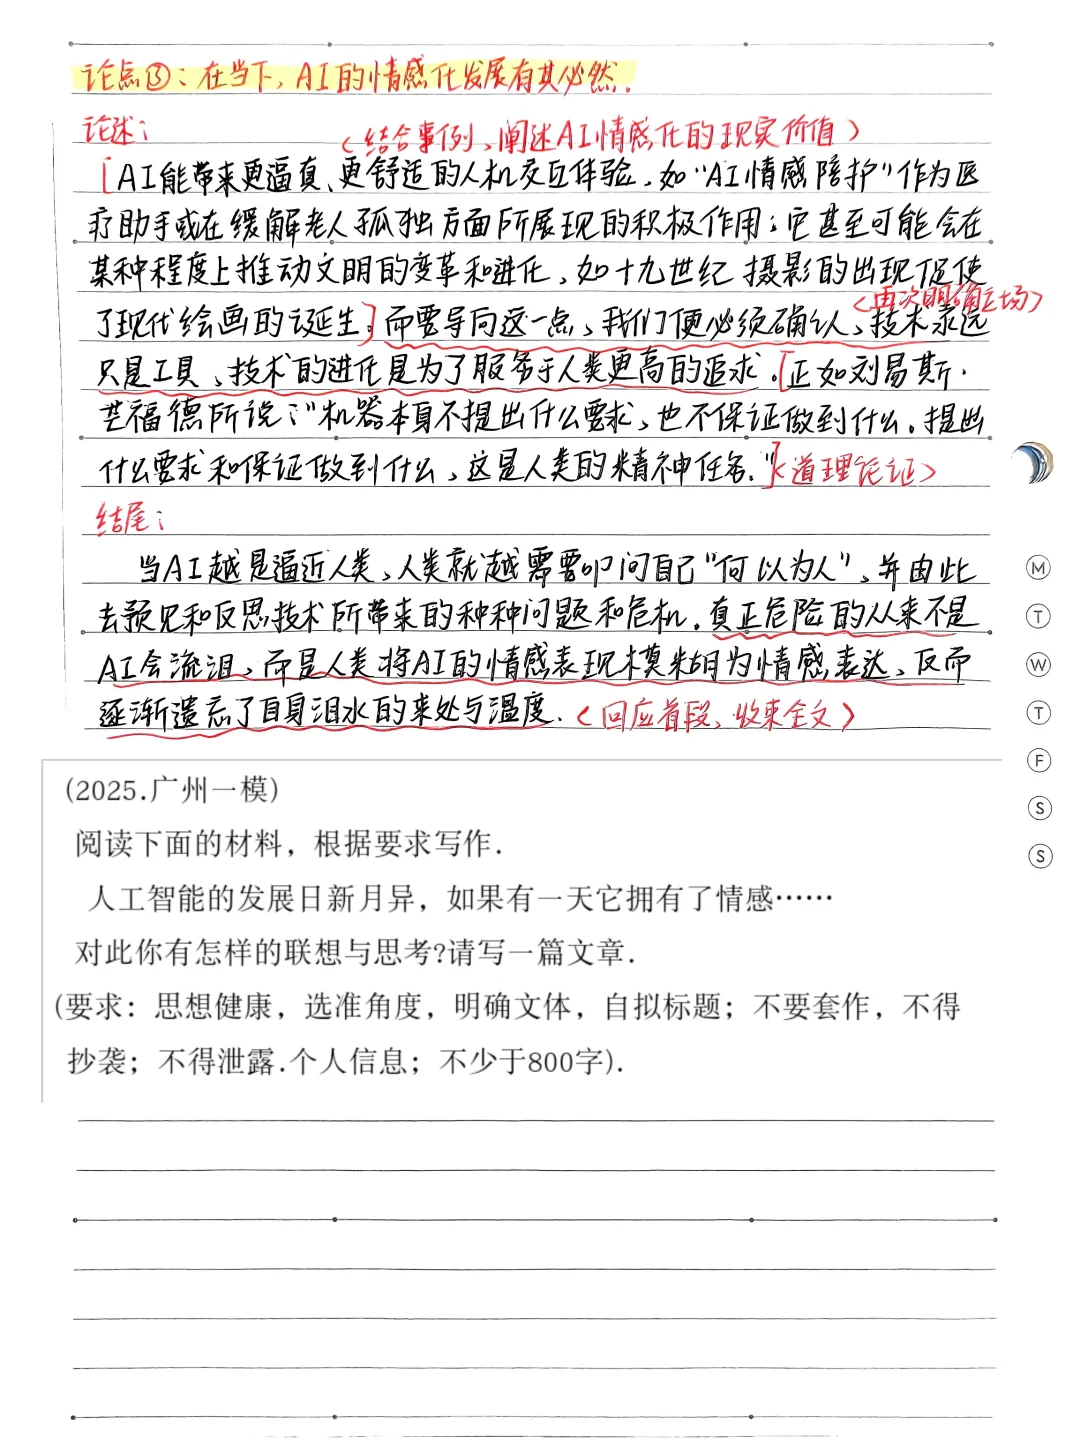 论点③：在当下，AI的情感化发展有其必然.
论述：
（结合事例，阐述AI情感化的现实价值）
[AI能带来更逼真、更舒适的人机交互体验，如“AI情感陪护”作为医
疗助手或在缓解老人孤独方面所展现的积极作用；它甚至可能会在
某种程度上推动文明的变革和进化，如十九世纪摄影的出现促使
（再次明确立场）
了现代绘画的诞生。]而要导向这一点，我们便必须确认，技术永远
只是工具，技术的进化是为了服务于人类更高的追求。[正如刘易斯·
芒福德所说：“机器本身不提出什么要求，也不保证做到什么。提出
什么要求和保证做到什么，这是人类的精神任务.”]（道理论证）
结尾：
当AI越是逼近人类，人类就越需要叩问自己“何以为人”，并由此
去预见和反思技术所带来的种种问题和危机.真正危险的从来不是
AI会流泪，而是人类将AI的情感表现模糊为情感表达，反而
逐渐遗忘了自身泪水的来处与温度.（回应首段，收束全文）
(2025.广州一模)
阅读下面的材料，根据要求写作.
人工智能的发展日新月异，如果有一天它拥有了情感……
对此你有怎样的联想与思考?请写一篇文章.
(要求：思想健康，选准角度，明确文体，自拟标题；不要套作，不得
抄袭；不得泄露.个人信息；不少于800字).
M
T
W
T
F
S
S